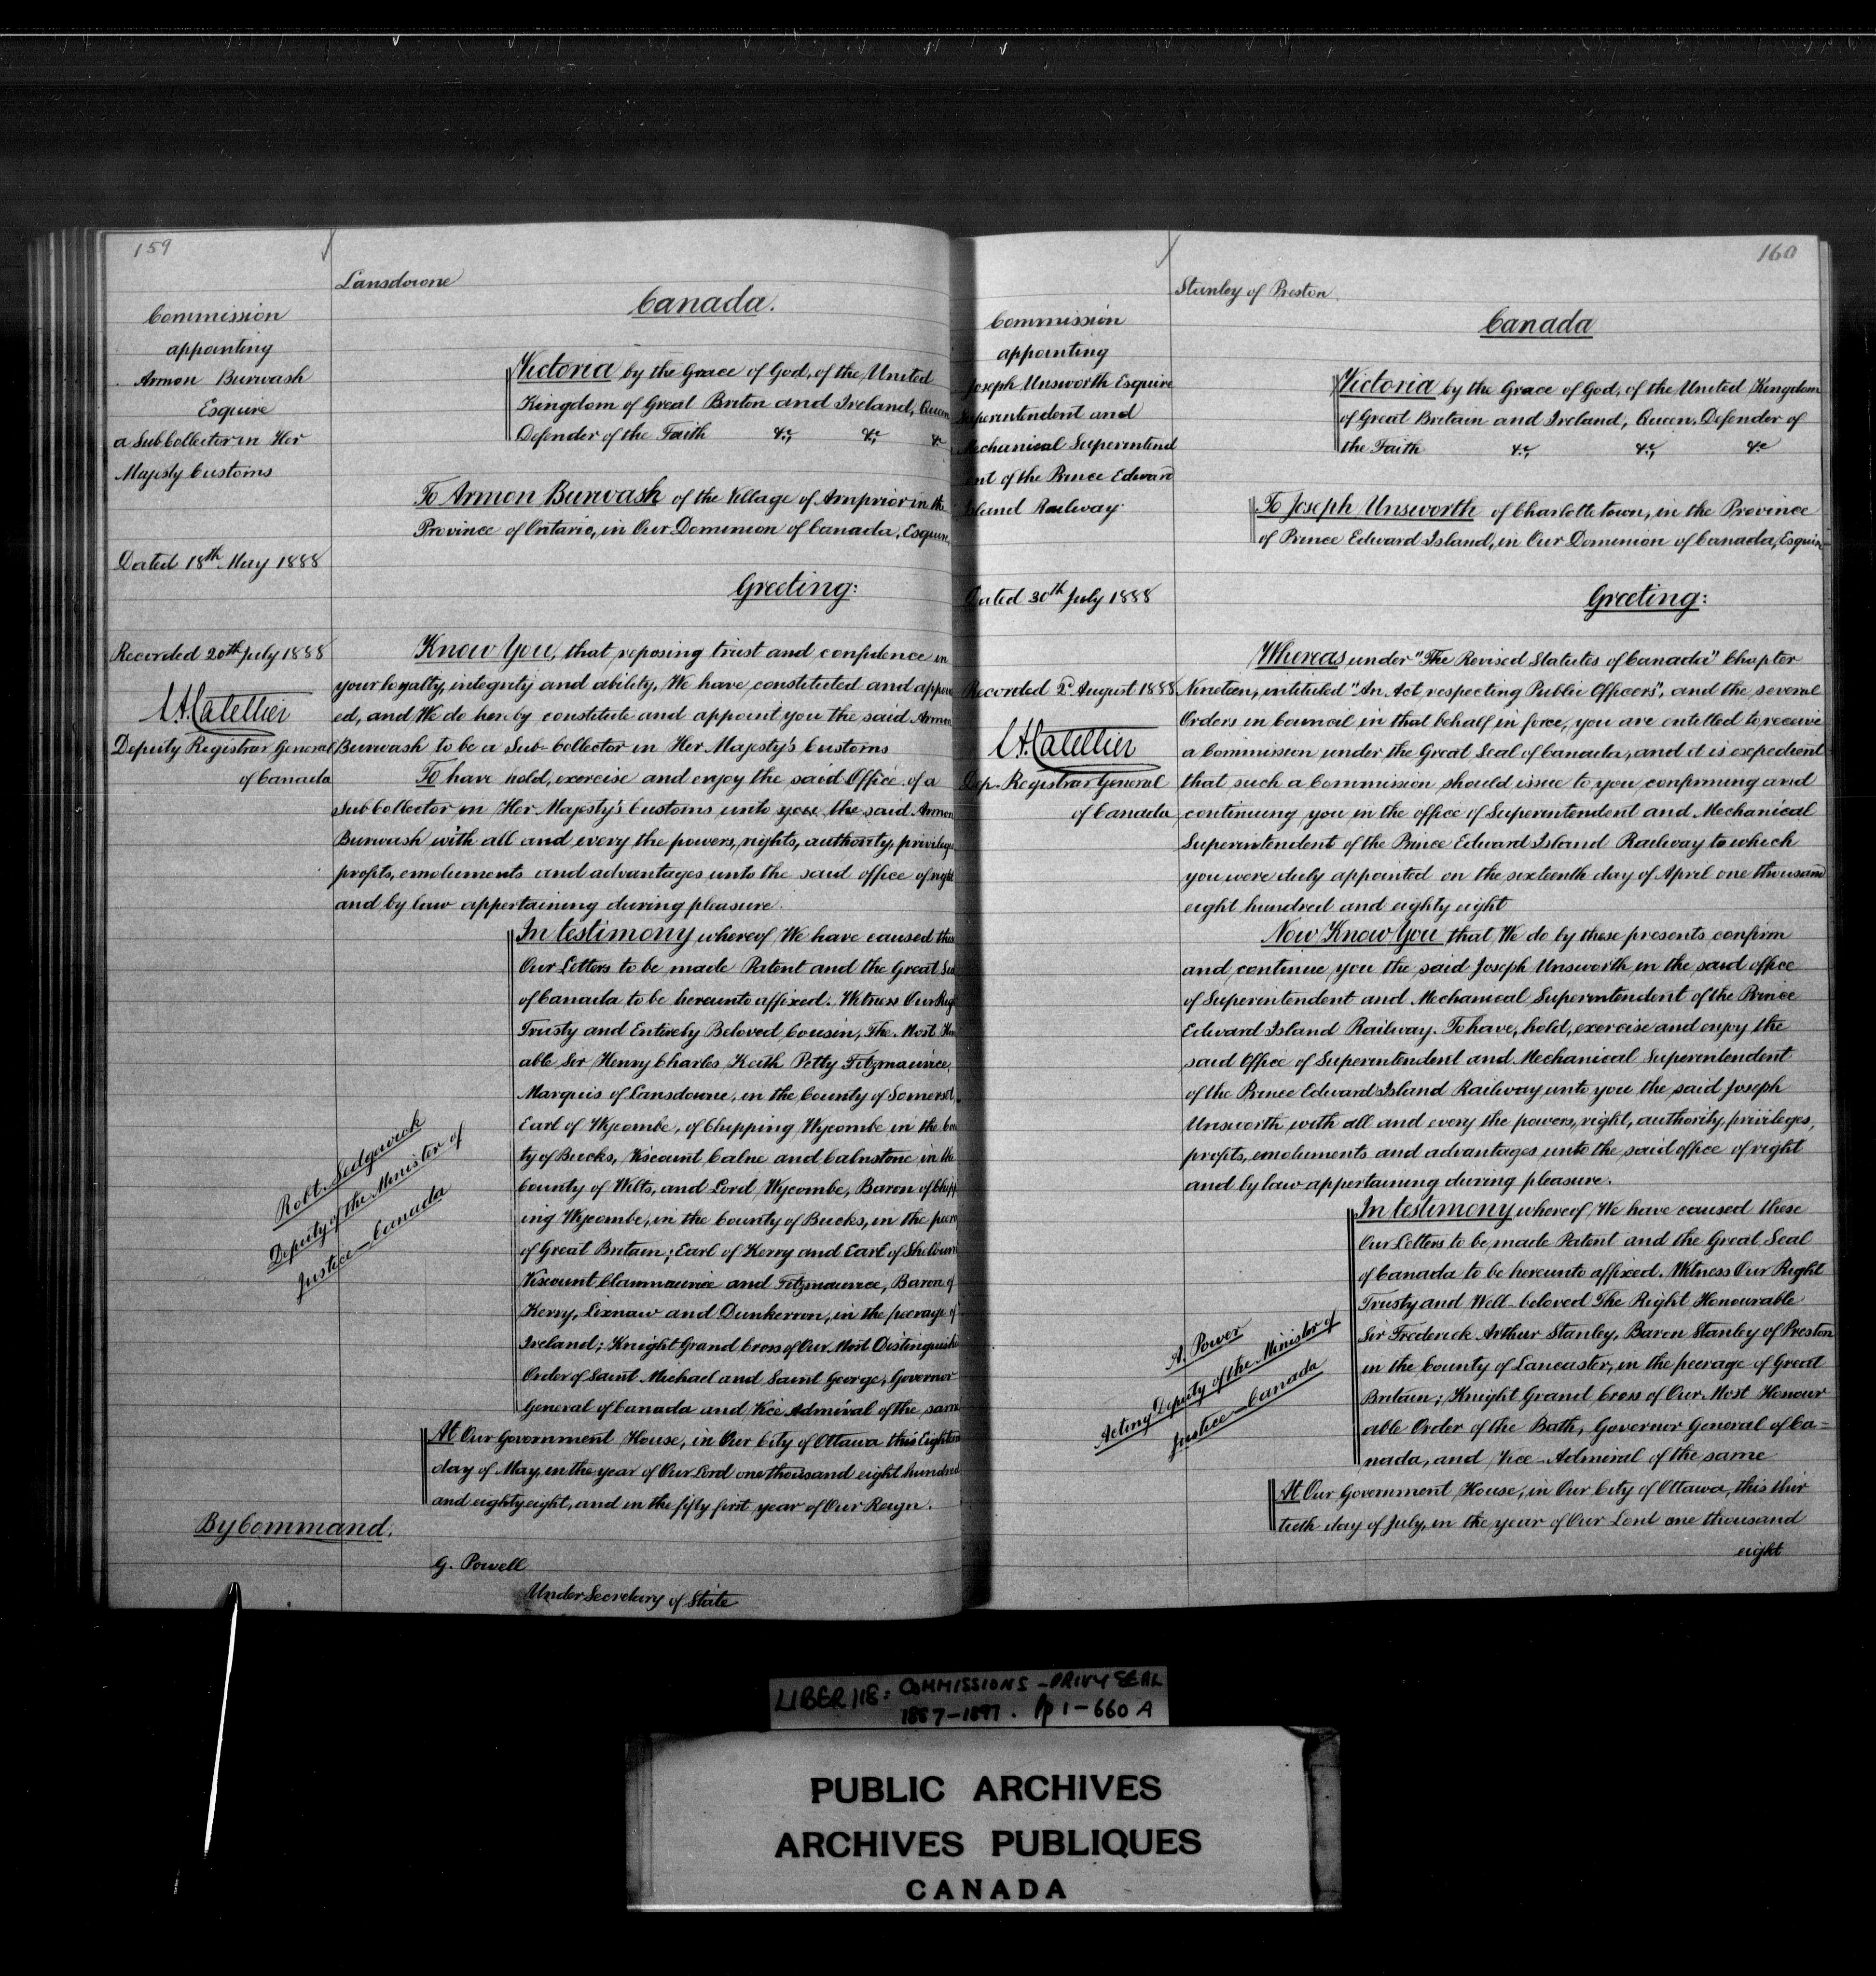 159
Lansdowne
Canada.
Commission
appointing
Armon Burwash
Esquire
a Sub Collector in Her
Majesty Customs
Dated 18th May 1888
Recorded 20th July 1888
L.A. Catellier
Deputy Registrar General
of Canada
Victoria by the Grace of God, of the United
Kingdom of Great Briton and Ireland, Queen
Defender of the Faith &c, &c, &c
To Armon Burwash of the Village of Arnprior in the
Province of Ontario, in Our Dominion of Canada, Esquire,
Greeting:
Know You, that reposing trust and confidence in
your loyalty, integrity and ability, We have constituted and appoint
ed, and We do hereby constitute and appoint you the said Armon
Burwash to be a Sub-Collector in Her Majesty's Customs
To have hold, exercise and enjoy the said Office of a
Sub Collector in Her Majesty's Customs unto you the said Armon
Burwash with all and every the powers, rights, authority, privileges
profits, emoluments and advantages unto the said office of right
and by law appertaining during pleasure.
In testimony whereof We have caused these
Our Letters to be made Patent and the Great Seal
of Canada to be hereunto affixed. Witness Our Right
Trusty and Entirely Beloved Cousin, The Most Honor
able Sir Henry Charles Keith Petty Fitzmaurice,
Marquis of Lansdowne, in the County of Somerset,
Earl of Wycombe, of Chipping Wycombe in the Coun
ty of Bucks, Viscount Calne and Calnstone in the
County of Wilts, and Lord Wycombe, Baron of Chipp
ing Wycombe, in the County of Bucks, in the peerage
of Great Britain; Earl of Kerry and Earl of Shelburne
Viscount Clanmaurice and Fitzmaurice, Baron of
Kerry, Lixnaw and Dunkerron, in the peerage of
Ireland; Knight Grand Cross of Our Most Distinguished
Order of Saint Michael and Saint George, Governor
General of Canada and Vice Admiral of the same
Robt. Sedgwick
Deputy of the Minister of
Justice - Canada
At Our Government House, in Our City of Ottawa this Eighteenth
day of May, in the year of Our Lord one thousand eight hundred
and eighty eight, and in the fifty first year of Our Reign.
By Command,
G. Powell
Under Secretary of State
160
Stanley of Preston.
Canada
Commission
appointing
Joseph Unsworth Esquire
Superintendent and
Mechanical Superintend
ent of the Prince Edward
Island Railway
Dated 30th July 1888
Recorded 2d August 1888
L.A. Catellier
Dep. Registrar General
of Canada
Victoria by the Grace of God, of the United Kingdom
of Great Britain and Ireland, Queen, Defender of
the Faith &c, &c, &c
To Joseph Unsworth of Charlottetown, in the Province
of Prince Edward Island, in Our Dominion of Canada, Esquire
Greeting:
Whereas under "The Revised Statutes of Canada" Chapter
Nineteen, intituled "An Act respecting Public Officers", and the several
Orders in Council in that behalf in force, you are entitled to receive
a Commission under the Great Seal of Canada, and it is expedient
that such a Commission should issue to you confirming and
continuing you in the office of Superintendent and Mechanical
Superintendent of the Prince Edward Island Railway to which
you were duly appointed on the sixteenth day of April one thousand
eight hundred and eighty eight
Now Know You that We do by these presents confirm
and continue you the said Joseph Unsworth in the said office
of Superintendent and Mechanical Superintendent of the Prince
Edward Island Railway. To have, hold, exercise and enjoy the
said Office of Superintendent and Mechanical Superintendent
of the Prince Edward Island Railway unto you the said Joseph
Unsworth with all and every the powers, right, authority, privileges,
profits, emoluments and advantages unto the said office of right
and by law appertaining during pleasure.
In testimony whereof We have caused these
Our Letters to be made Patent and the Great Seal
of Canada to be hereunto affixed. Witness Our Right
Trusty and Well-beloved The Right Honourable
Sir Frederick Arthur Stanley, Baron Stanley of Preston
in the County of Lancaster, in the peerage of Great
Britain; Knight Grand Cross of Our Most Honour
able Order of the Bath, Governor General of Ca=
nada, and Vice-Admiral of the same
A. Power
Acting Deputy of the Minister of
Justice - Canada
At Our Government House, in Our City of Ottawa, this thir
tieth day of July, in the year of Our Lord one thousand
eight
LIBER 118: COMMISSIONS - PRIVY SEAL
1887-1897. pp 1-660 A
PUBLIC ARCHIVES
ARCHIVES PUBLIQUES
CANADA